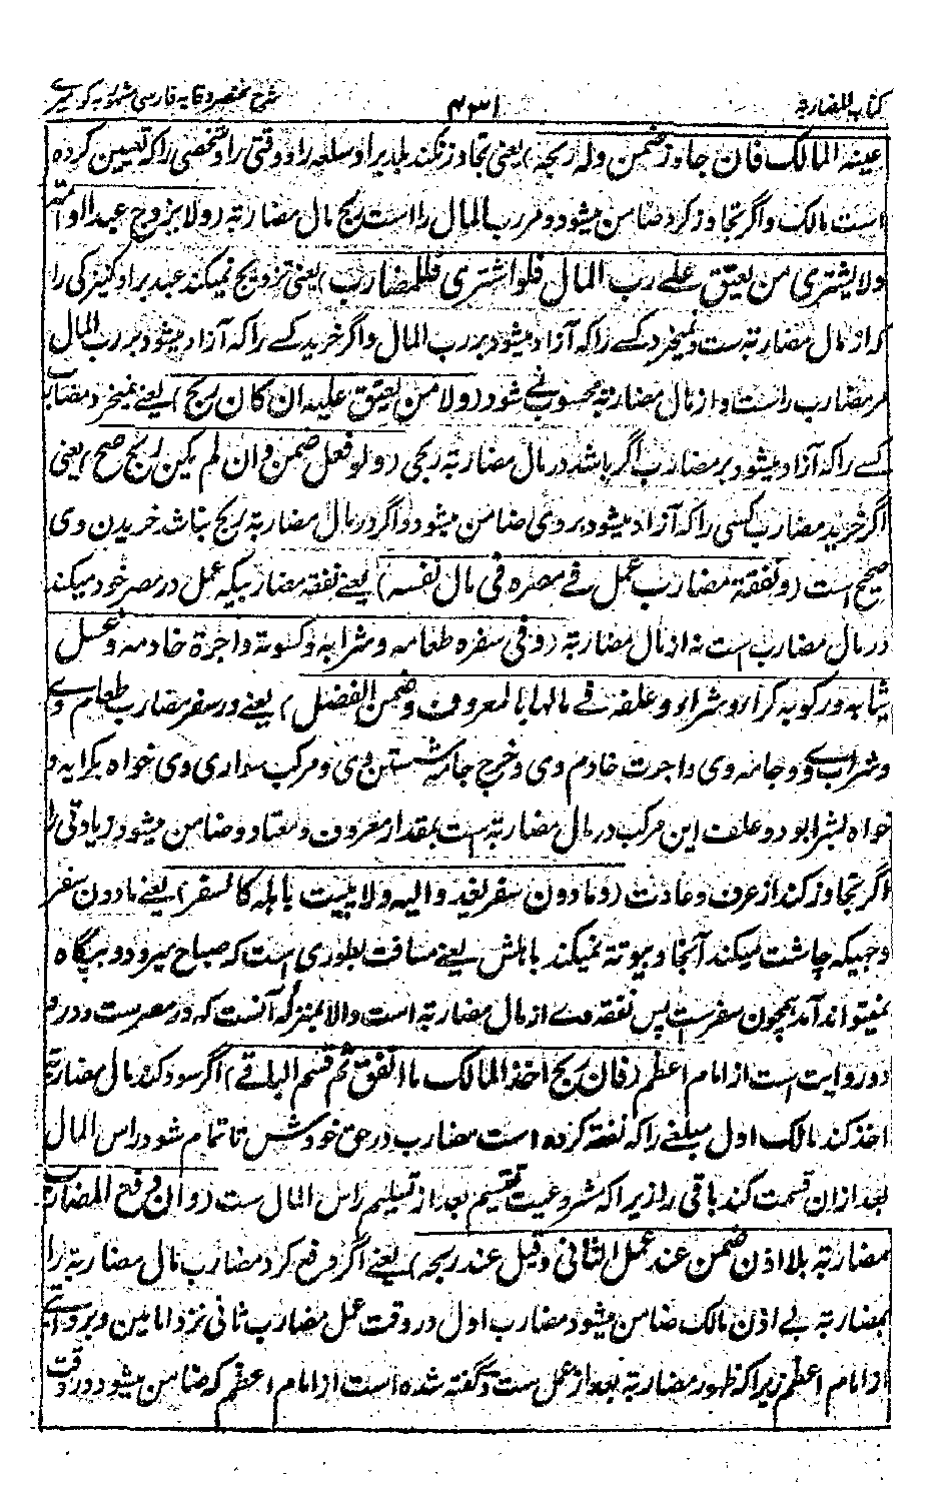 كتاب المضاربة
۴۳۱
شرح مختصر وقایه فارسی مشهور به کویری
عینه المالک فان جاوز ضمن وله ربحه) یعنی تجاوز نکند بلد را و سلعه را و وقتی را و شخصی را که تعیین کرده
است مالک و اگر تجاوز کرد ضامن میشود و مر رب المال را است ربح مال مضاربة (ولا یزوج عبدا او امة
ولا یشتری من یعتق علے رب المال فلو اشتری فللمضارب) یعنی تزویج نمیکند عبد را و کنیزکی را
که از مال مضاربة ست و نمیخرد کسے راکه آزاد میشود بر رب المال و اگر خرید کسے راکه آزاد میشود بر رب المال
مر مضارب راست و از مال مضاربة محسوب نمے شود (ولا من یعتق علیه ان کان ربح) یعنے نمیخرد مضارب
کسے راکه آزاد میشود بر مضارب اگر باشد در مال مضاربة ربحی (ولو فعل ضمن وان لم یکن ربح صح) یعنی
اگر خرید مضارب کسی راکه آزاد میشود بروی ضامن میشود و اگر در مال مضاربة ربح نباشد خریدن وی
صحیح است (ونفقة مضارب عمل فے مصره فی مال نفسه) یعنے نفقه مضاربیکه عمل در مصر خود میکند
در مال مضارب است نه از مال مضاربة (وفی سفره طعامه وشرابه وکسوته واجرة خادمه وغسل
ثیابه ورکوبه کراء وشراء وعلفه فے مالها بالمعروف وضمن الفضل) یعنے در سفر مضارب طعام وے
وشراب وے و جامه وی و اجرت خادم وی و خرج جامه شستن وی و مرکب سواری وی خواه بکرایه و
خواه بشرا بود و علف این مرکب در مال مضاربة است بمقدار معروف و معتاد و ضامن میشود زیادتی را
اگر تجاوز کند از عرف و عادت (وما دون سفر یغدو الیه ولا یبیت باهله کالسفر) یعنے مادون سفر
وجهیکه چاشت میکند آنجا و بیوتة نمیکند باهلش یعنے مسافت بطوری است که صباح میرود و بیگاه
نمیتواند آمد همچون سفرست پس نفقه وے از مال مضاربة است والا بمنزله آنست که در مصرست و درو
دو روایت است از امام اعظم (فان ربح اخذ المالک ما انفق ثم قسم الباقے) اگر سود کند مال مضاربة
اخذ کند مالک اول مبلغے راکه نفقه کرده است مضارب در حق خودش تا تمام شود راس المال
بعد ازان قسمت کند باقی را زیراکه مشروعیت تقسیم بعد از تسلیم راس المال ست (وان دفع المضارب
مضاربة بلا اذن ضمن عند عمل الثانی وقیل عند ربحه) یعنے اگر دفع کرد مضارب مال مضاربة را
بمضاربة بے اذن مالک ضامن میشود مضارب اول در وقت عمل مضارب ثانی نزد امامین و بروایتے
از امام اعظم زیراکه ظهور مضاربة بعد از عمل ست و گفته شده است از امام اعظم که ضامن میشود در وقت